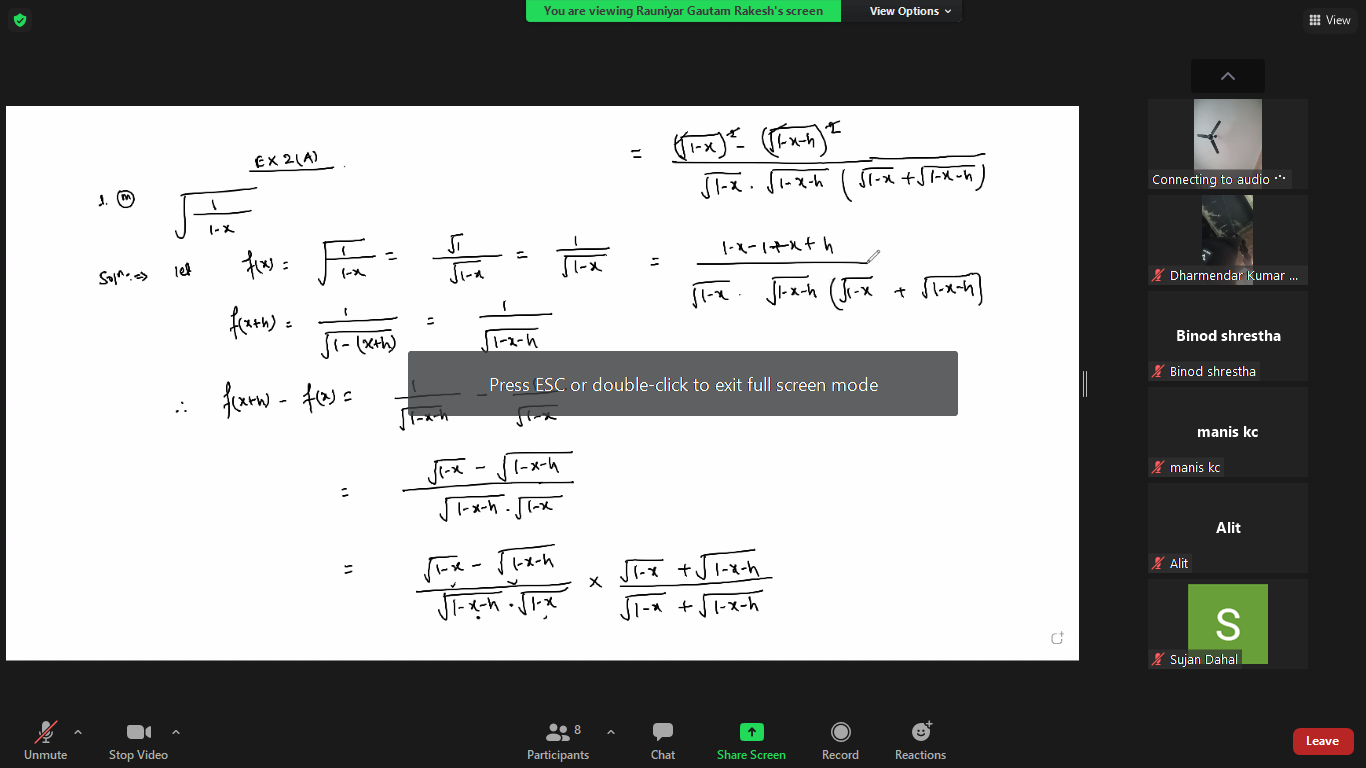 You are viewing Rauniyar Gautam Rakesh's screen
View Options
View
EX 2(A)
1. (m) √(1/(1-x))
Soln:⇒ let f(x) = √(1/(1-x)) = √1/√(1-x) = 1/√(1-x)
f(x+h) = 1/√(1-(x+h)) = 1/√(1-x-h)
∴ f(x+h) - f(x) = 1/√(1-x-h) - 1/√(1-x)
= (√(1-x) - √(1-x-h))/(√(1-x-h) · √(1-x))
= (√(1-x) - √(1-x-h))/(√(1-x-h) · √(1-x)) × (√(1-x) + √(1-x-h))/(√(1-x) + √(1-x-h))
= ((√(1-x))² - (√(1-x-h))²)/(√(1-x) · √(1-x-h) (√(1-x) + √(1-x-h)))
= (1-x-1+x+h)/(√(1-x) · √(1-x-h) (√(1-x) + √(1-x-h)))
Press ESC or double-click to exit full screen mode
Connecting to audio
Dharmendar Kumar ...
Binod shrestha
Binod shrestha
manis kc
manis kc
Alit
Alit
S
Sujan Dahal
Unmute
Stop Video
Participants
8
Chat
Share Screen
Record
Reactions
Leave